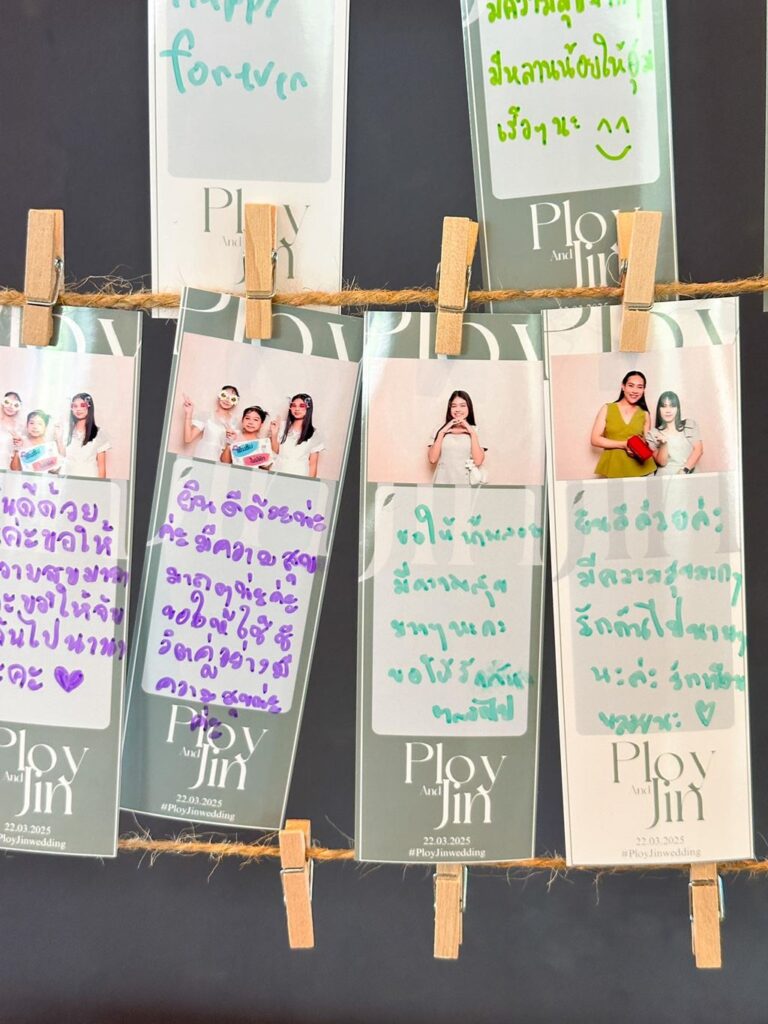 Happy
forever
Ploy
And
Jin
มีความสุขมากๆ
มีหลานน้อยให้อุ้ม
เร็วๆ นะ ^^
Ploy
And
Jin
Ploy
ดีด้วย
ค่ะขอให้
ขอให้
กันไปนานๆ
คะ ♡
Ploy
And
Jin
22.03.2025
#PloyJinwedding
Ploy
ยินดีด้วยน่ะ
ค่ะ มีความสุข
มากๆน่ะค่ะ
ขอให้ใช้ชี
วิตคู่อย่างมี
ความสุขน่ะ
ค่ะ
Ploy
And
Jin
22.03.2025
#PloyJinwedding
Ploy
ขอให้
มีความสุข
มากๆนะคะ
ขอให้รักกัน
Ploy
And
Jin
22.03.2025
#PloyJinwedding
Ploy
ยินดีด้วยค่ะ
มีความสุขมากๆ
รักกันไปนานๆ
นะค่ะ รักเพื่อน
นะ ♡
Ploy
And
Jin
22.03.2025
#PloyJinwedding